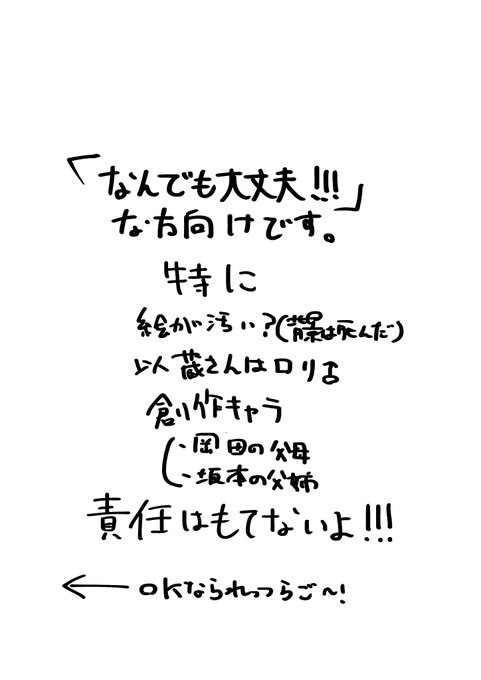 「なんでも大丈夫!!!」
な方向けです。
特に
絵が汚い?(背景は死んだ)
以蔵さんはロリ♂
創作キャラ
・岡田の父母
・坂本の父姉
責任はもてないよ!!!
← OKなられっつらご〜!